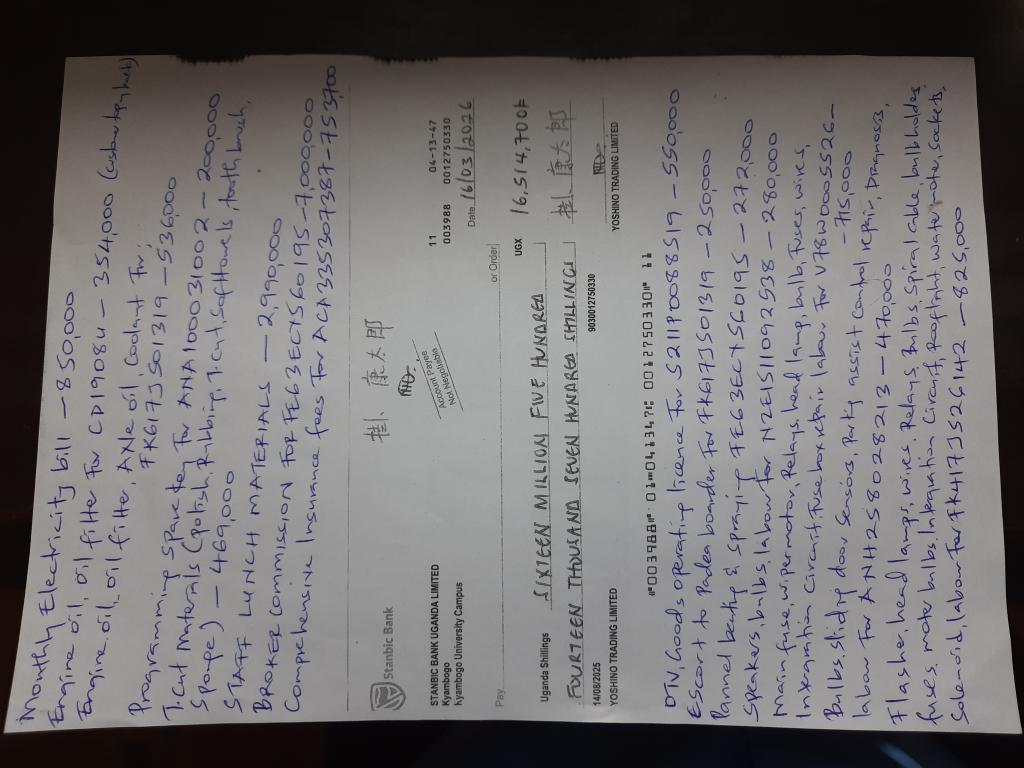 Monthly Electricity bill — 850,000
Engine oil, oil filter For CD19084 — 354,000 (
Engine oil, oil filter, AXle oil Coolant For;
FK617JS01319 — 536,000
Programming Spare key For ANA10 0031002 — 200,000
T.Cut Materials (Polish, Rubbing, T.Cut, soft towels, toothbrush,
Sponge) — 469,000
STAFF LUNCH MATERIALS — 2,990,000
BROKER COMMISSION FOR FE63ECYS60195 - 7,000,000
Comprehensive Insurance fees For ACA335307387 - 753,700
桂、康太郎
Account Payee
Not Negotiable
Stanbic Bank
STANBIC BANK UGANDA LIMITED
Kyambogo
Kyambogo University Campus
11 04-13-47
003988 0012750330
Date 16/03/2026
Pay
or Order
Uganda Shillings SIXTEEN MILLION FIVE HUNDRED UGX 16,514,700/=
FOURTEEN THOUSAND SEVEN HUNDRED SHILLINGS
桂、康太郎
14/08/2025 9030012750330
YOSHINO TRADING LIMITED YOSHINO TRADING LIMITED
"003988" 01"041347: 0012750330" 11
DTV, Goods operating licence For S211P0088519 — 550,000
Escort to Padea boarder For FK617JS01319 — 250,000
Pannel beating & Spraying FE63ECYS60195 — 272,000
Speakers, bulbs, labour for NZE1511092538 — 280,000
Main fuse, wiper motor, Relays, head lamp, bulb, Fuses, wires,
Inxagration Circuit, Fuse box repair labour For V78W0005526 —
— 715,000
Bulbs, sliding door Sensors, Parky assist Control repair, Diagnosis,
labour for ANH258028213 — 470,000
Flasher, head lamps, wires, Relays, Bulbs, Spiral cable, bulb holders
fuses, moter bulbs, Inkgnation Circuit, Roof light, water moter, sockets,
Solenoid, labour For FK417JS26142 — 825,000